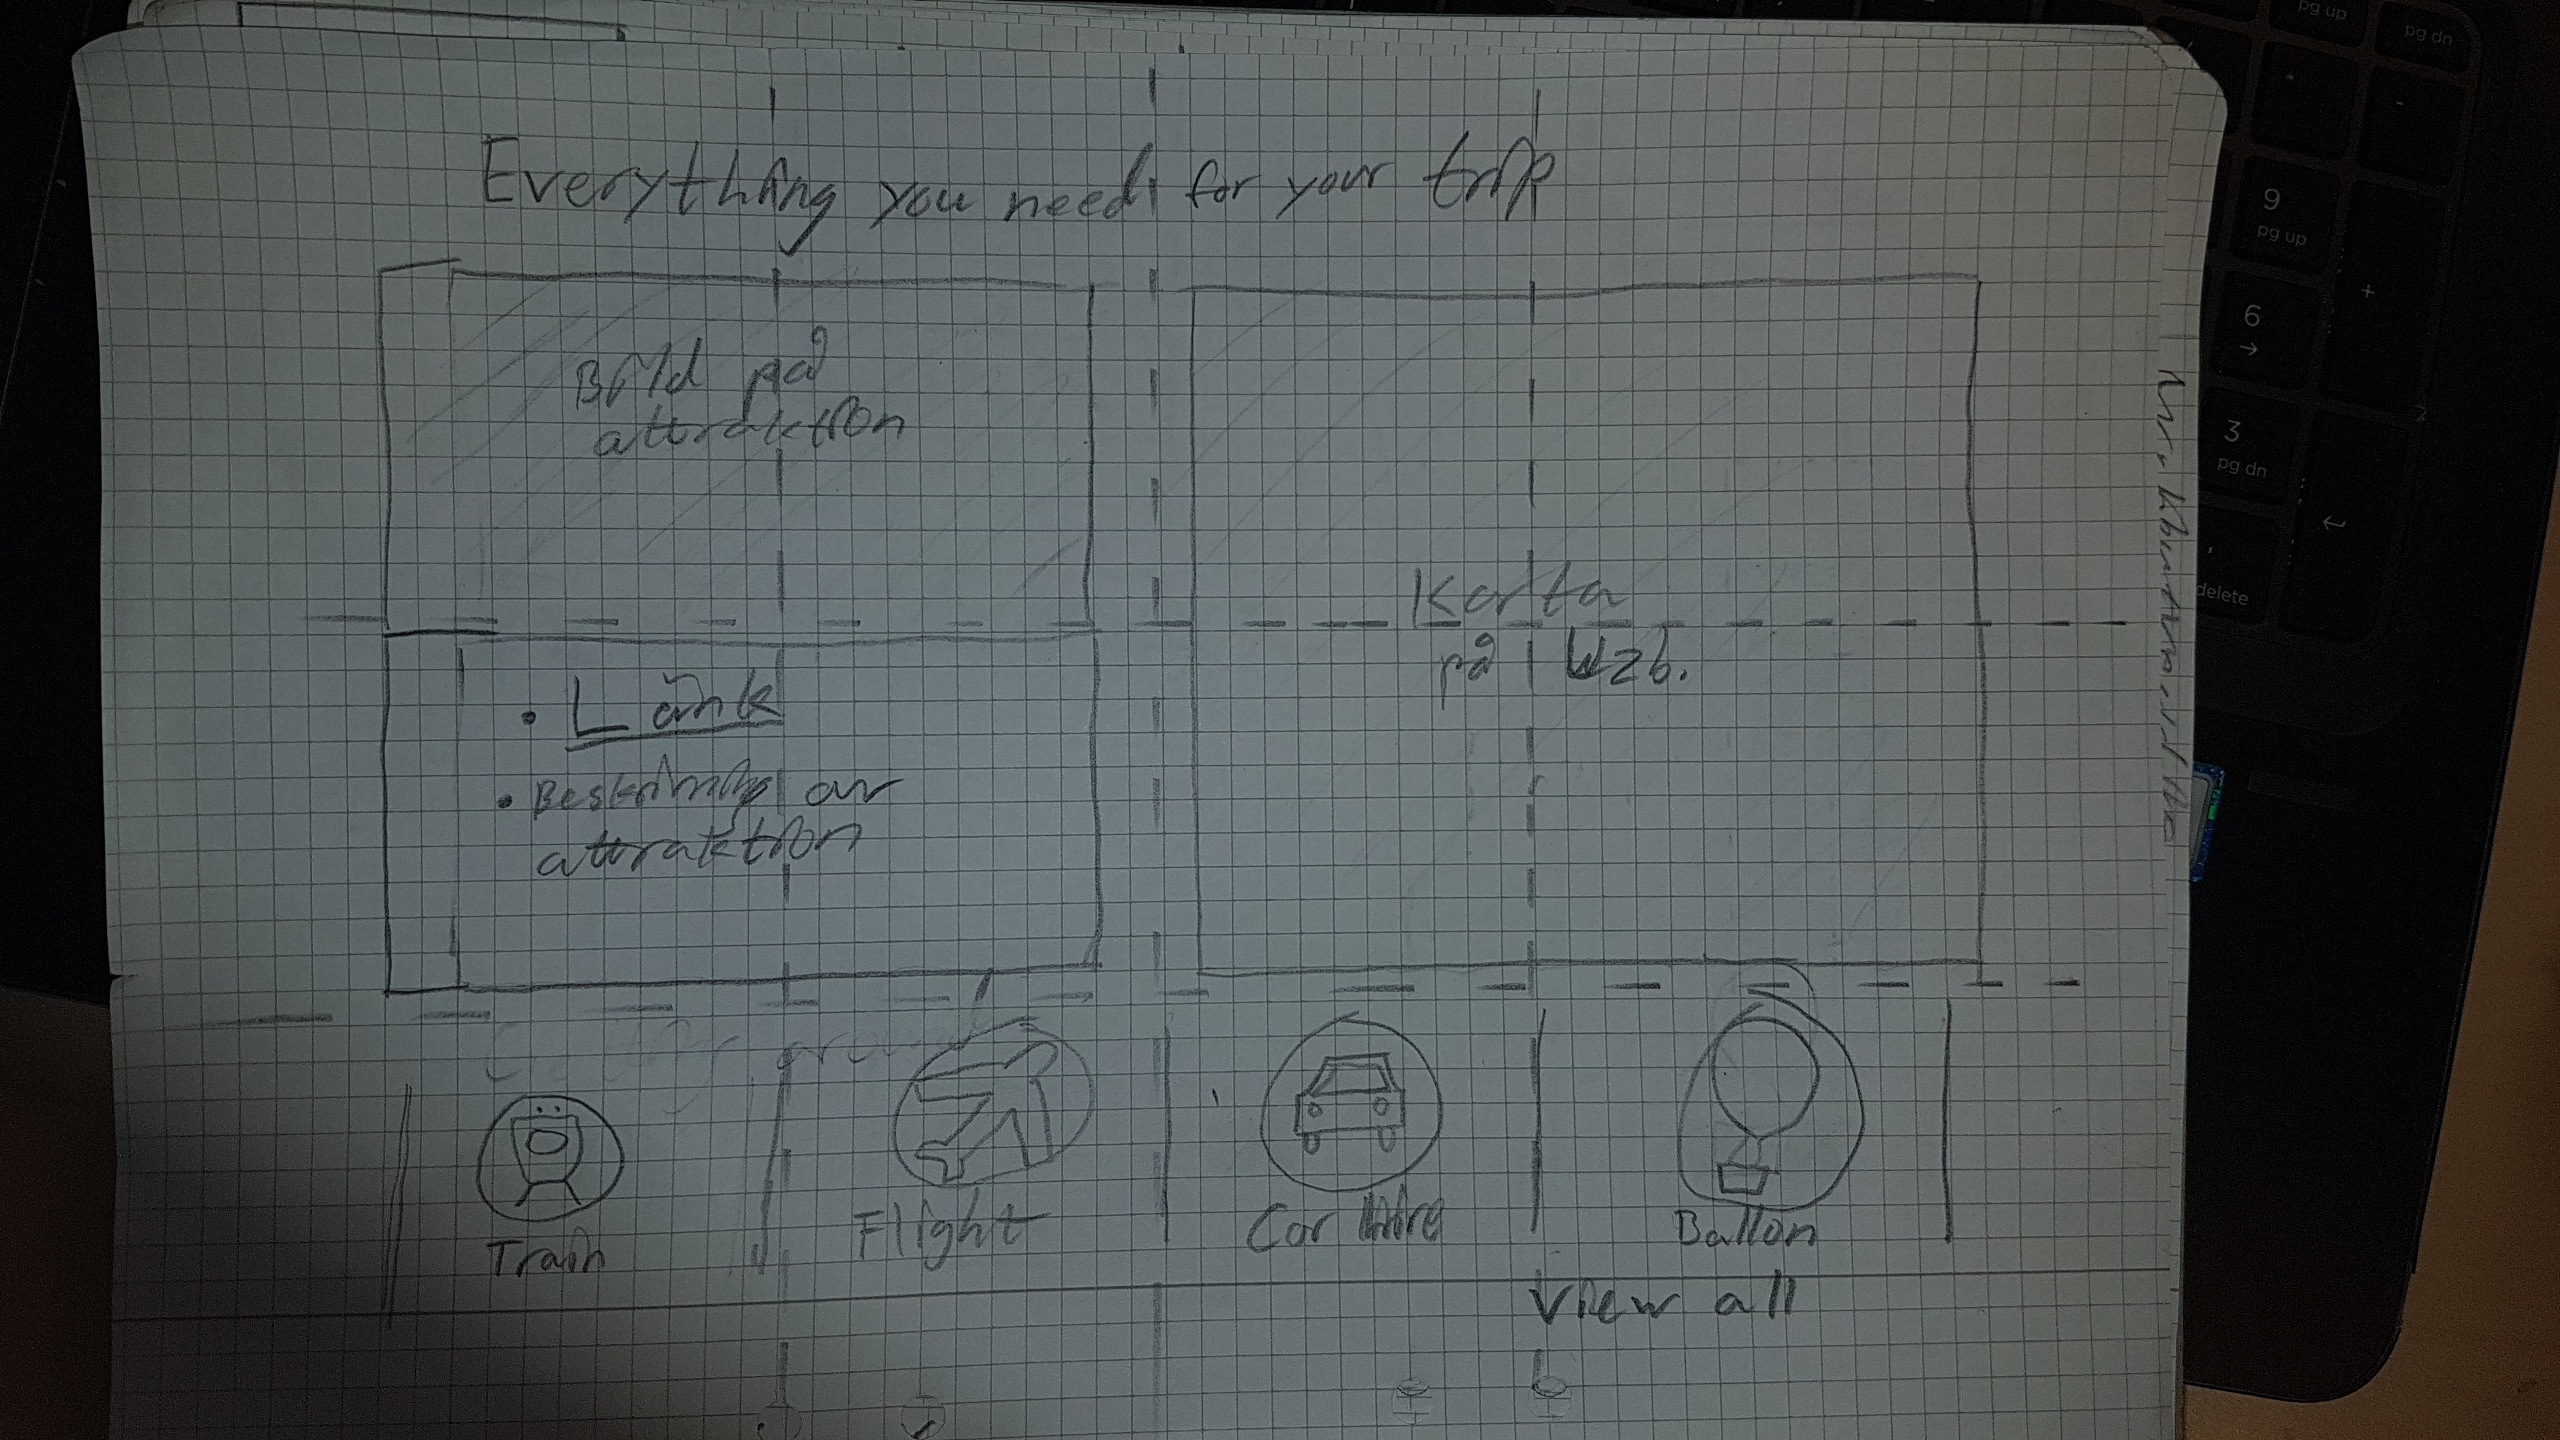 Everything you need for your trip
Bild på
attraktion
• Länk
• Beskrivning av
attraktion
Karta
på
Train
Flight
Car Hire
Ballon
View all
delete
3
pg dn
6
→
9
pg up
+
-
pg up
pg dn